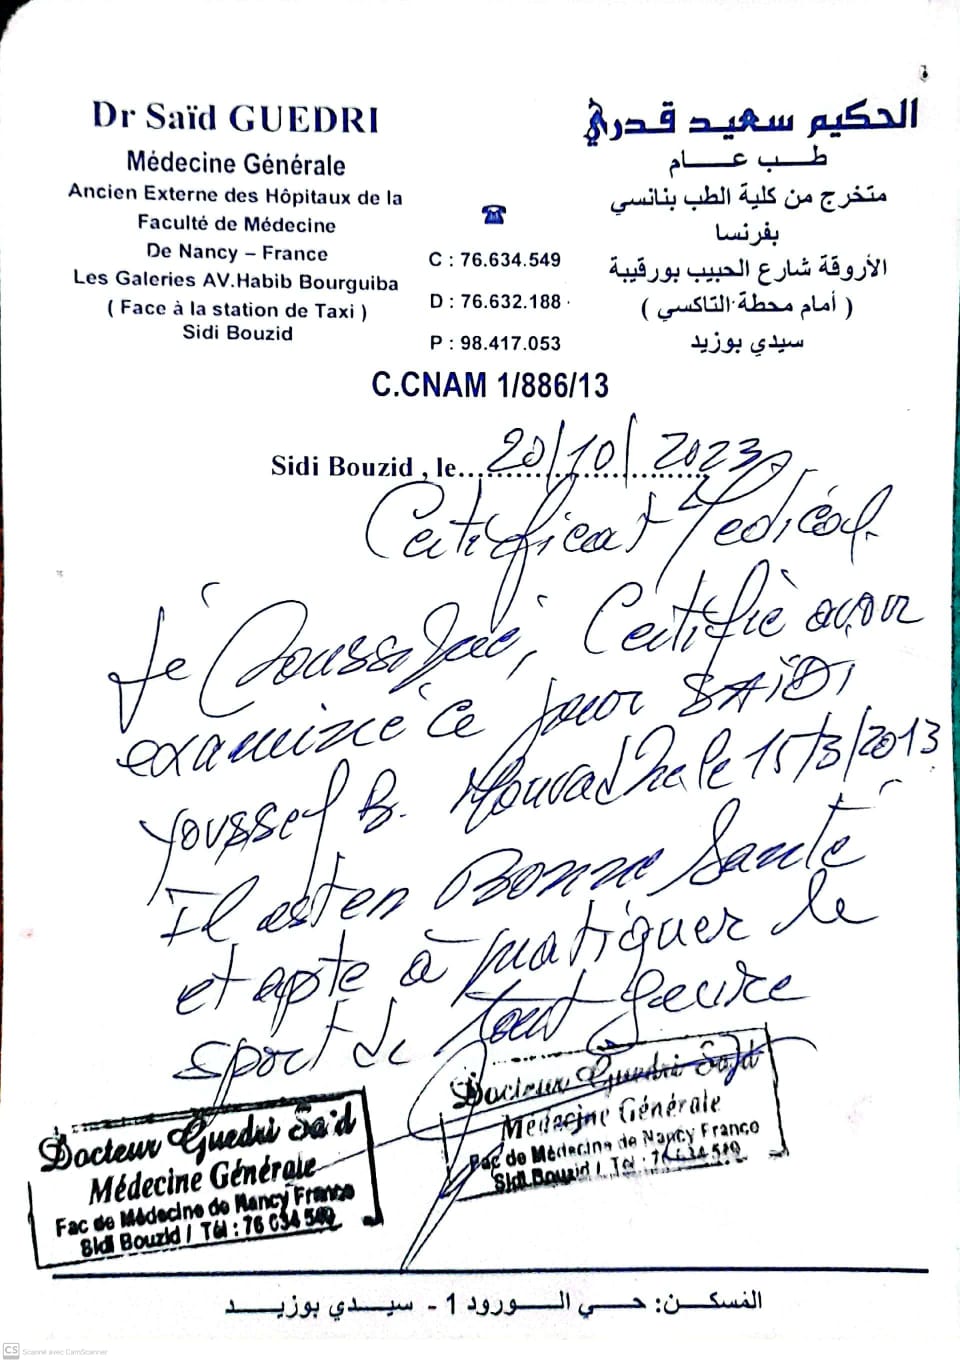 Dr Saïd GUEDRI
Médecine Générale
Ancien Externe des Hôpitaux de la
Faculté de Médecine
De Nancy – France
Les Galeries AV.Habib Bourguiba
( Face à la station de Taxi )
Sidi Bouzid
☎
C : 76.634.549
D : 76.632.188
P : 98.417.053
الحكيم سعيد قدري
طب عام
متخرج من كلية الطب بنانسي
بفرنسا
الأروقة شارع الحبيب بورقيبة
( أمام محطة التاكسي )
سيدي بوزيد
C.CNAM 1/886/13
Sidi Bouzid , le... 20/10/2023
Certificat Médical
Je Soussigné, Certifie avoir
examiné ce jour SAÏDI
Youssef B. le 15/3/2013
Il est en Bonne Santé
et apte à pratiquer le
sport de tout genre
Docteur Guedri Saïd
Médecine Générale
Fac de Médecine de Nancy France
Sidi Bouzid / Tél : 76 634 549
Docteur Guedri Saïd
Médecine Générale
Fac de Médecine de Nancy France
Sidi Bouzid / Tél : 76 634 549
المسكن: حي الورود 1 - سيدي بوزيد
CS Scanné avec CamScanner